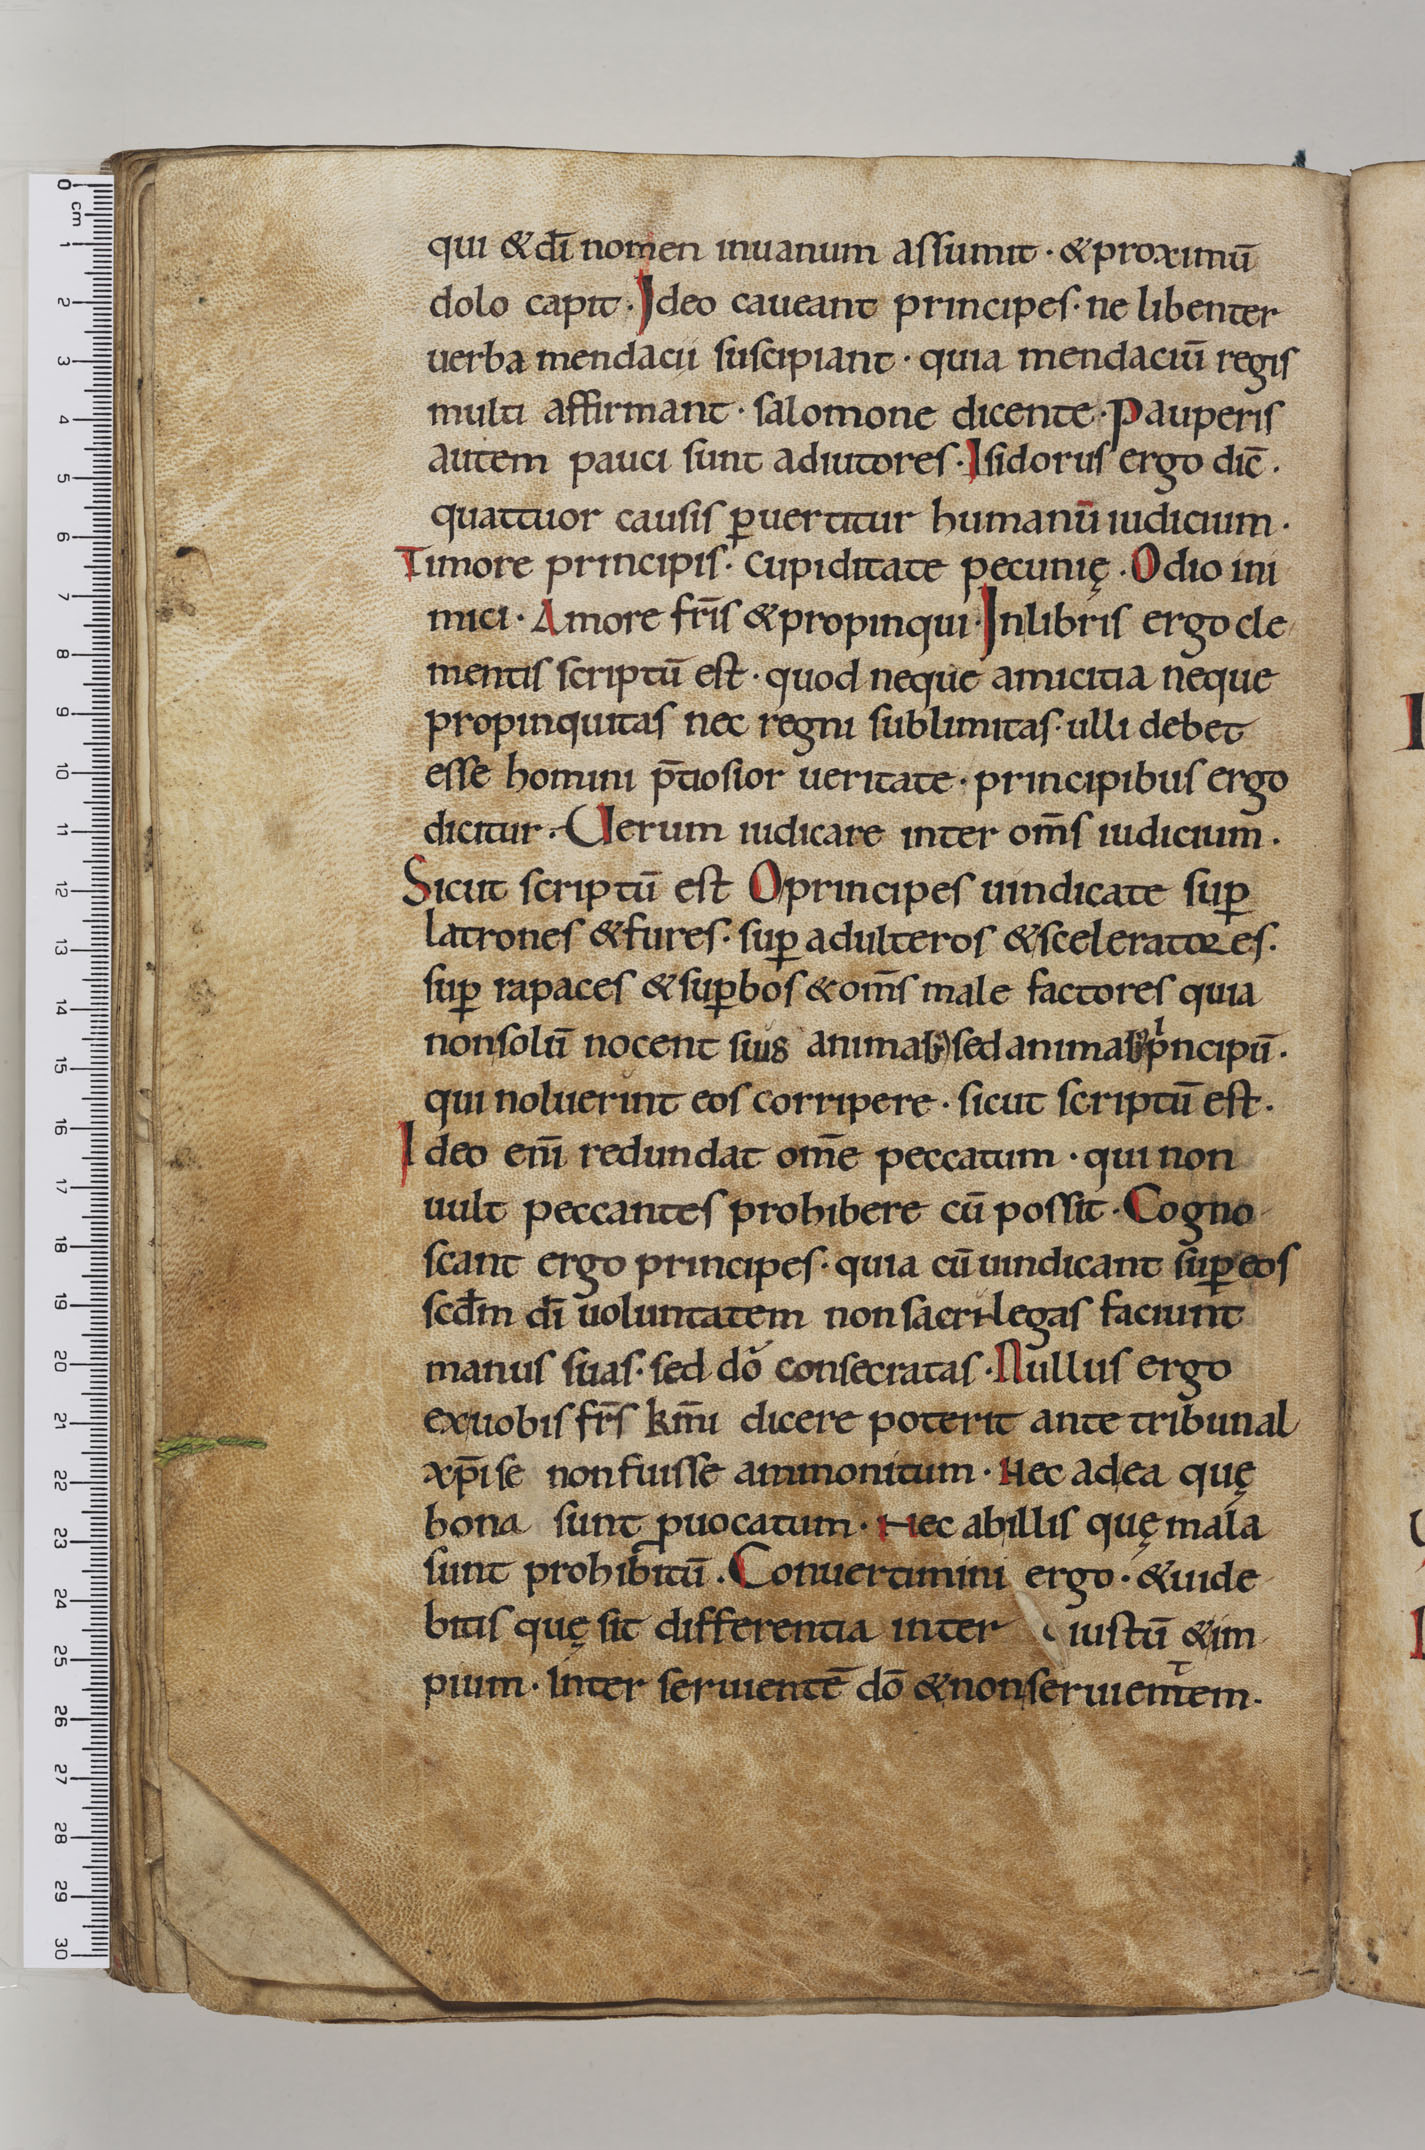 qui & dī nomen inuanum assumit · & proximū
dolo capit · Ideo caueant principes · ne libenter
uerba mendacii suscipiant · quia mendaciū regis
multi affirmant · salomone dicente · Pauperis
autem pauci sunt adiutores · Isidorus ergo dic̄ ·
quattuor causis ꝑuertitur humanū iudicium ·
Timore principis · cupiditate pecunię · Odio ini
mici · Amore fr̄is & propinqui · In libris ergo cle
mentis scriptū est · quod neque amicitia neque
propinquitas nec regni sublimitas · ulli debet
esse homini p̄tiosior ueritate · principibus ergo
dicitur · Uerum iudicare inter om̄s iudicium ·
Sicut scriptū est O principes uindicate suꝑ
latrones & fures · suꝑ adulteros & sceleratores ·
suꝑ rapaces & suꝑbos & om̄s male factores quia
non solū nocent suis animab; sed animab; pⁱncipū ·
qui noluerint eos corripere · sicut scriptū est ·
Ideo enī redundat om̄e peccatum · qui non
uult peccantes prohibere cū possit · Cogno
scant ergo principes · quia cū uindicant suꝑ eos
scd̄m dī uoluntatem non sacrilegas faciunt
manus suas · sed dō consecratas · Nullus ergo
ex uobis fr̄s km̄i dicere poterit ante tribunal
xp̄i se non fuisse ammonitum · Nec ad ea quę
bona sunt ꝓuocatum · Nec ab illis quę mala
sunt prohibitū · Conuertimini ergo · & uide
bitis quę sit differentia inter iustū & im
pium · Inter seruientē dō & non seruientem ·
0 cm
1
2
3
4
5
6
7
8
9
10
11
12
13
14
15
16
17
18
19
20
21
22
23
24
25
26
27
28
29
30